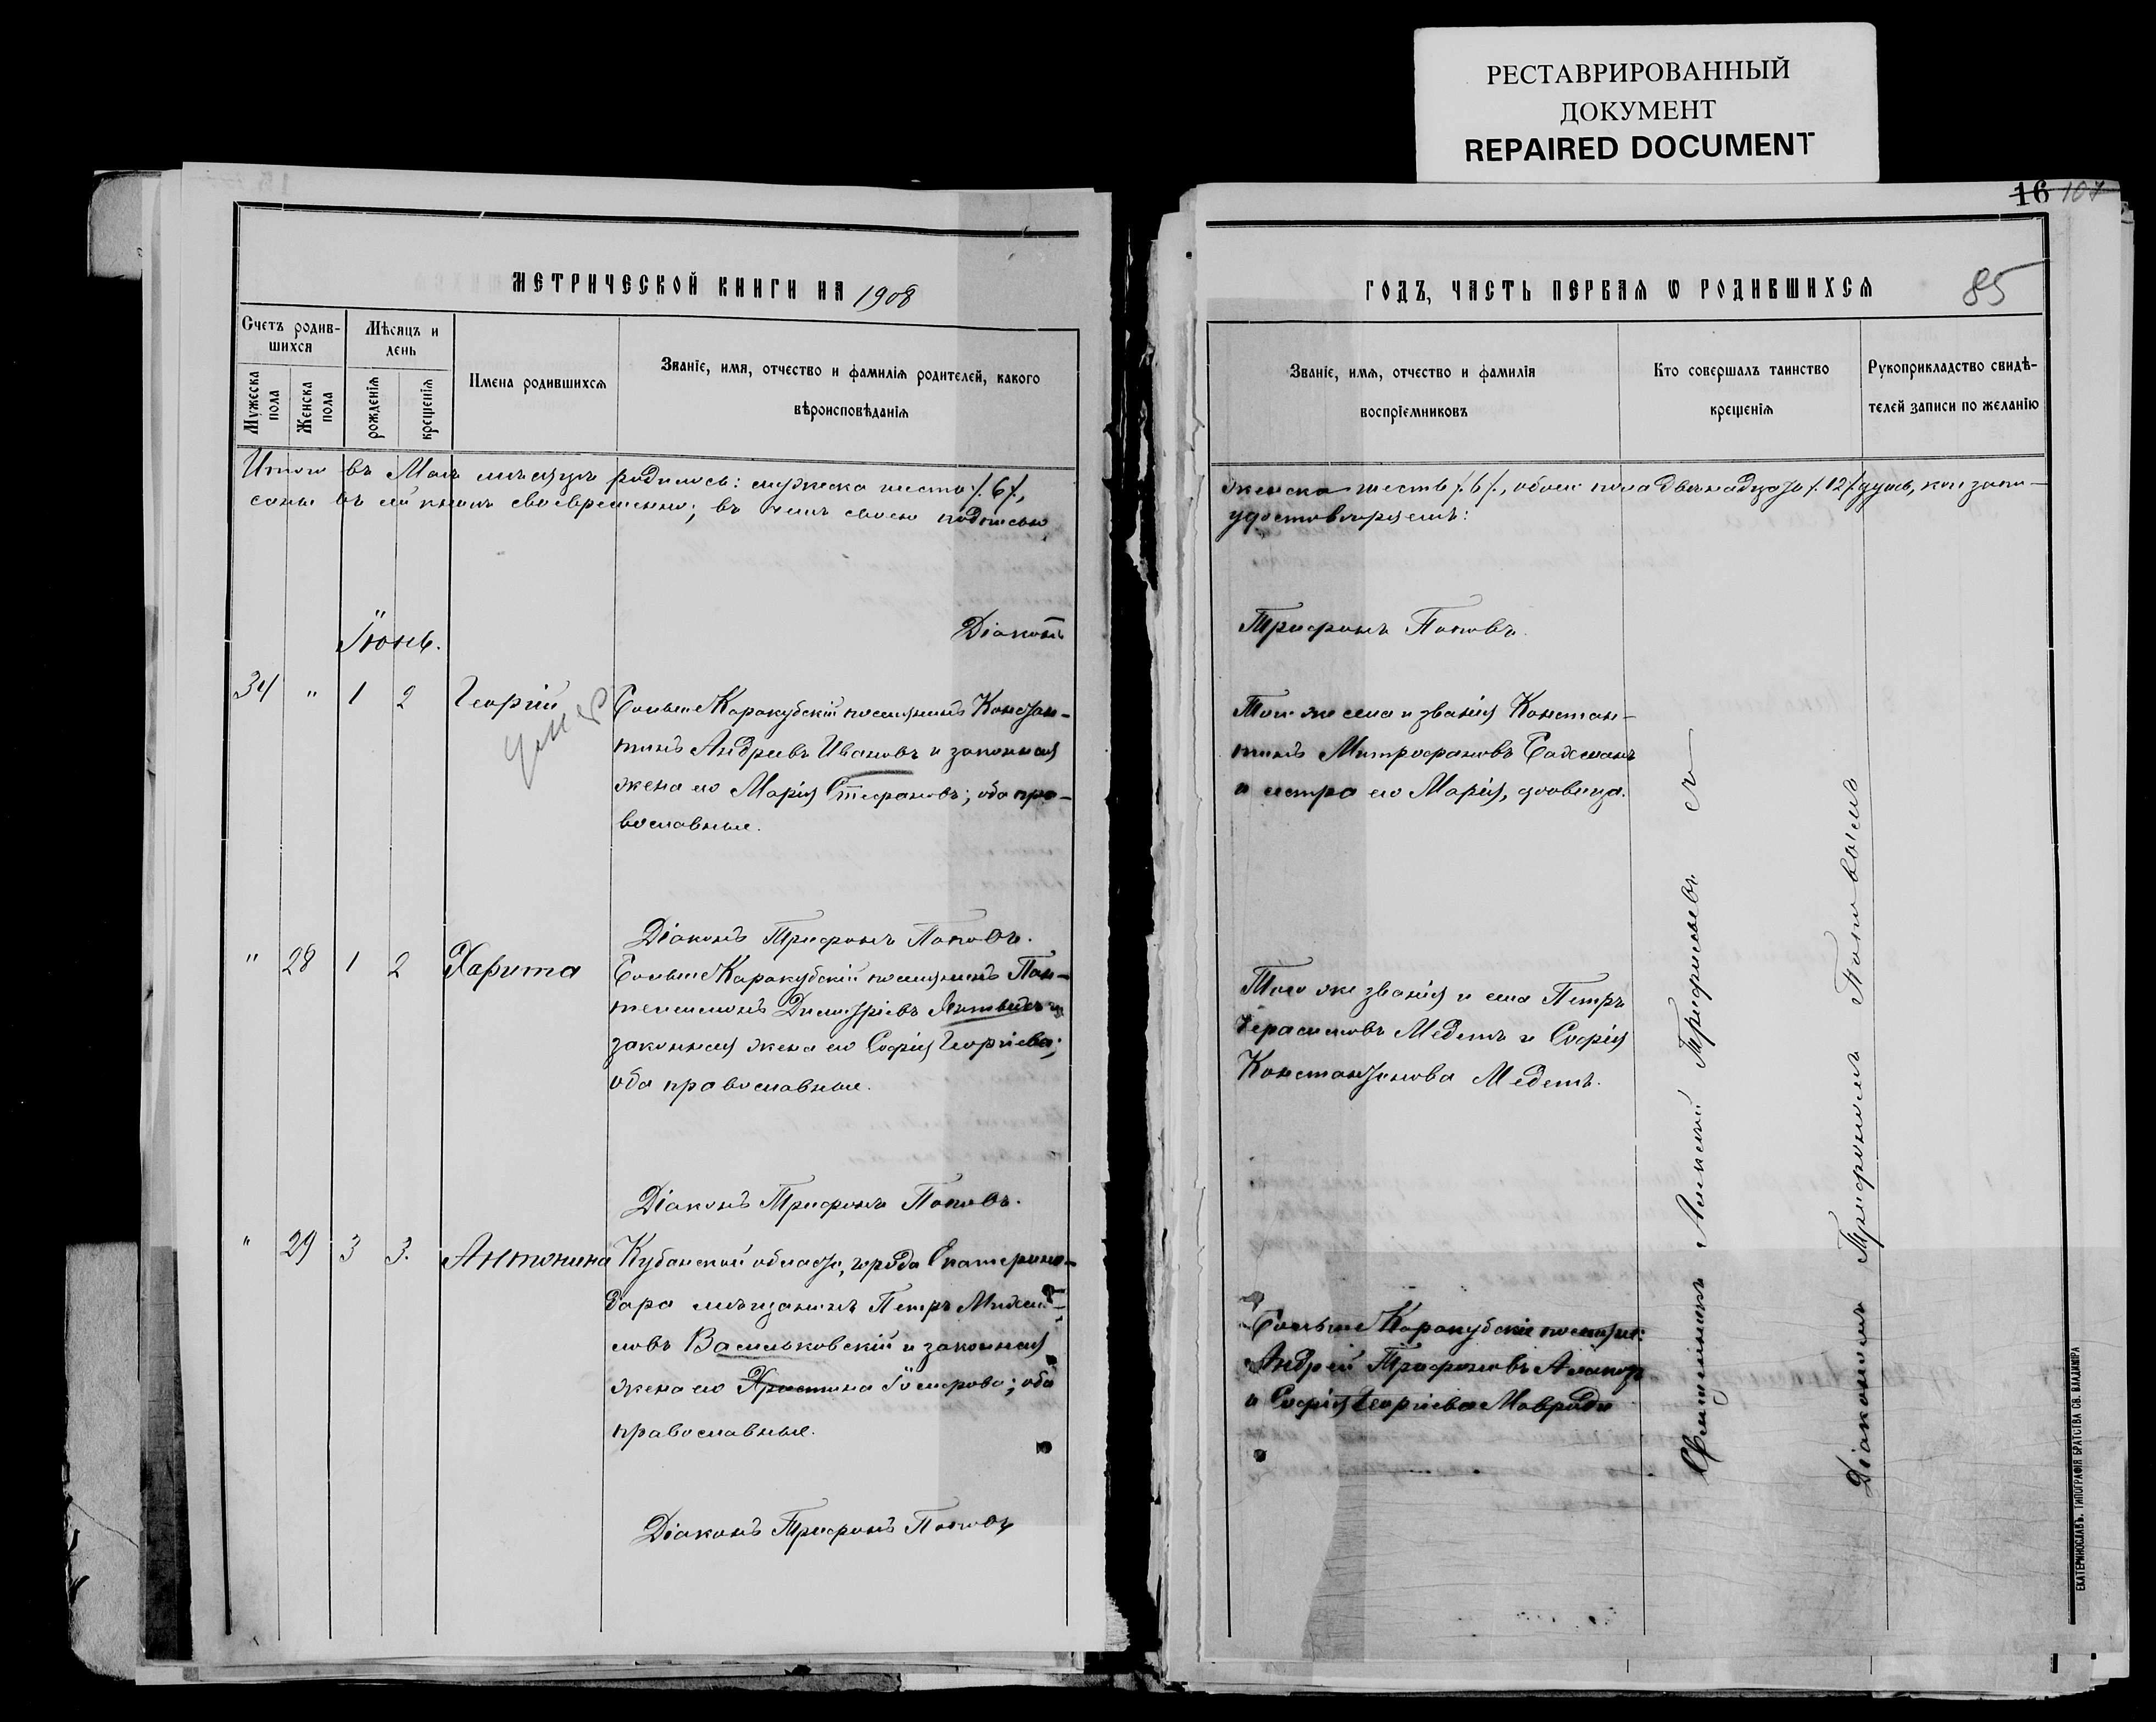 РЕСТАВРИРОВАННЫЙ
ДОКУМЕНТ
REPAIRED DOCUMENT
16 107
МЕТРИЧЕСКОЙ КНИГИ НА 1908
Счетъ родив-
шихся
Мужеска пола
Женска пола
Мѣсяцъ и
день
рожденія
крещенія
Имена родившихся
Званіе, имя, отчество и фамилія родителей, какого
вѣроисповѣданія
Итого въ Маѣ мѣсяцѣ родилось: мужеска шесть /.6/.,
саны въ сей книгѣ своевременно; въ чемъ своею подписью
Діаконъ
Іюнь.
34 " 1 2 Георгій
Больше-Каракубскій поселянинъ Констан-
тинъ Андреевъ Ивановъ и законная
жена его Марія Стефанова; оба пра-
вославные.
Діаконъ Трифонъ Поповъ.
" 28 1 2 Харита
Больше-Каракубскій поселянинъ Пан-
телеимонъ Димитріевъ и
законная жена его Софія Георгіева;
оба православные.
Діаконъ Трифонъ Поповъ.
" 29 3 3. Антонина
Кубанской области, города Екатерино-
дара мѣщанинъ Петръ Михаи-
ловъ Васильковскій и законная
жена его Христина; оба
православные.
Діаконъ Трифонъ Поповъ
ГОДЪ, ЧАСТЬ ПЕРВАЯ Ѡ РОДИВШИХСЯ
85
Званіе, имя, отчество и фамилія
воспріемниковъ
Кто совершалъ таинство
крещенія
Рукоприкладство свидѣ-
телей записи по желанію
женска шесть /.6/., обоего пола двѣнадцать /.12/. душъ, кои запи-
удостовѣряемъ:
Трифонъ Поповъ.
Того же села и званія Констан-
тинъ Митрофановъ Бахманъ
и сестра его Марія, дѣвица.
Того же званія и села Петръ
Герасимовъ Медетъ и Софія
Константинова Медетъ.
Больше-Каракубскіе поселяне:
Андрей Трифоновъ
и Софія Георгіева Мавроди
Священникъ Алексій Трифильевъ съ
Діакономъ Трифономъ Поповымъ
ЕКАТЕРИНОСЛАВЪ. ТИПОГРАФІЯ БРАТСТВА СВ. ВЛАДИМІРА